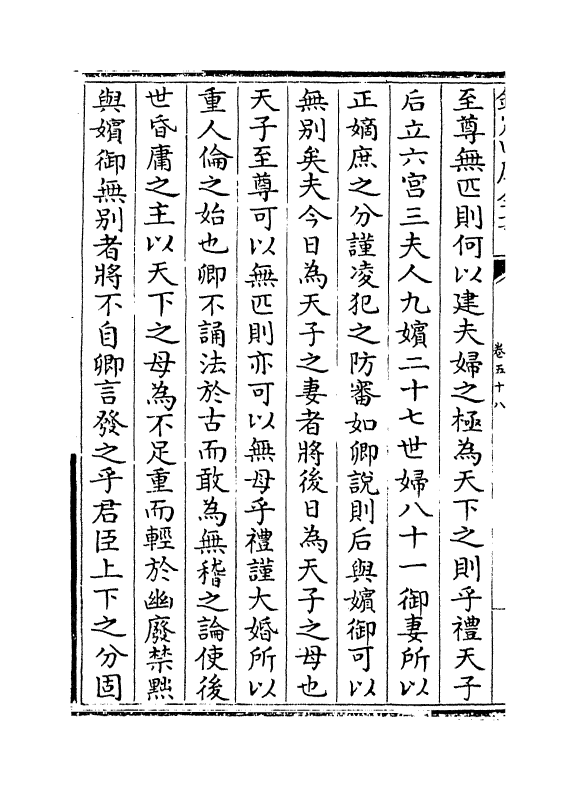 卷五十八
至尊無匹則何以建夫婦之極為天下之則乎禮天子
后立六宫三夫人九嬪二十七世婦八十一御妻所以
正嫡庶之分謹凌犯之防審如卿說則后與嬪御可以
無别矣夫今日為天子之妻者將後日為天子之母也
天子至尊可以無匹則亦可以無母乎禮謹大婚所以
重人倫之始也卿不誦法於古而敢為無稽之論使後
世昏庸之主以天下之母為不足重而輕於幽廢禁黜
與嬪御無别者將不自卿言發之乎君臣上下之分固